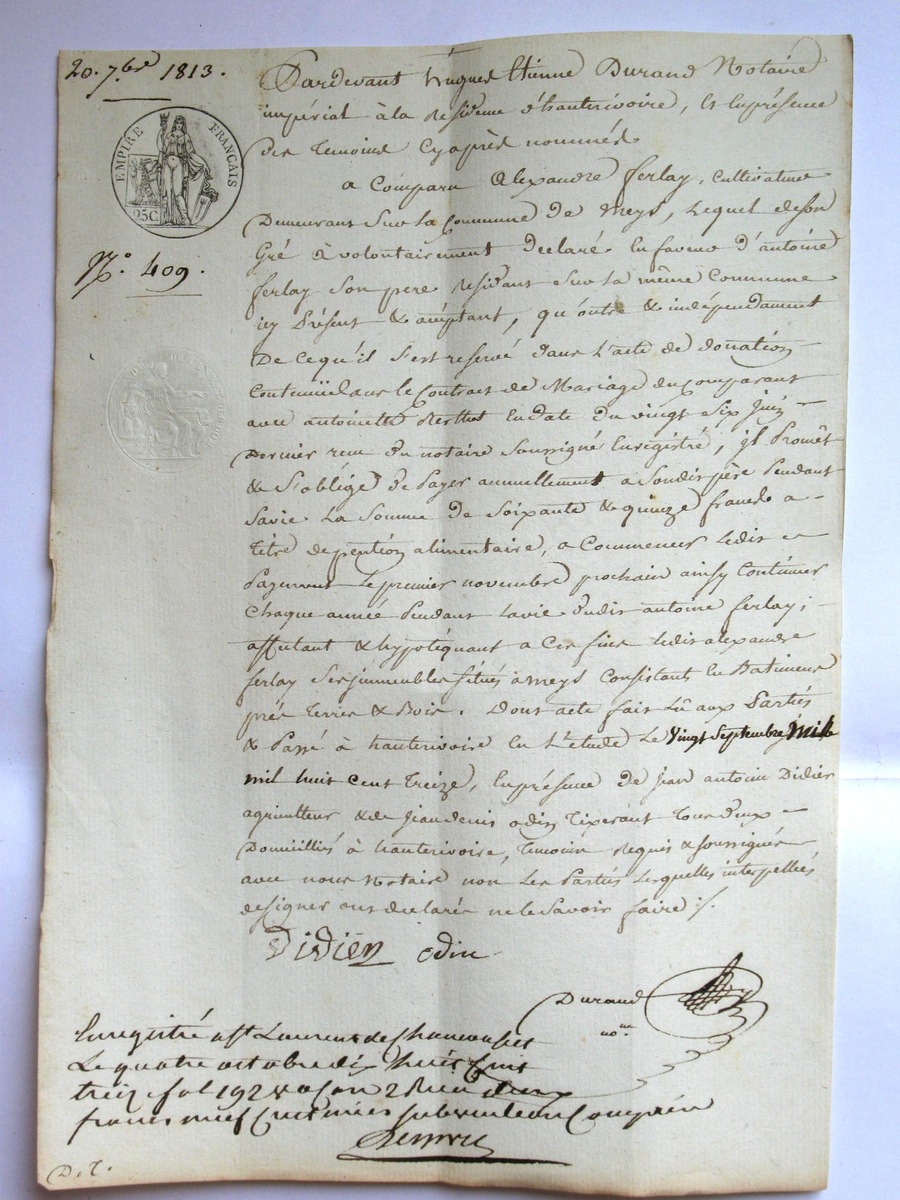 20. 7.bre 1813.
EMPIRE FRANÇAIS
25C
N.o 409.
Pardevant hugues Etienne Durand Notaire
impérial à la Residence d'hauterivoire, & En présence
des Temoins Cy après nommés
a Comparu Alexandre ferlay, Cultivateur
Demeurant Sur la Commune de meys, Lequel de son
Gré & volontairement declaré En faveur d'antoine
ferlay Son pere Residant Sur la même Commune
icy Présent & acceptant, qu'outre & indépendament
De Ce qu'il S'est reservé dans L'acte de donation
Contenüe dans le Contract de Mariage du Comparant
avec antoinette En date du vingt Six
Dernier recu du notaire Soussigné Enregistré, il Promêt
& S'oblige de Payer annuellement a Sondit père Pendant
Sa vie La Somme de Soixante & quinze francs a
Titre de pention alimentaire, a Commencer Ledit
Payement Le premier novembre prochain ainsy Continuer
Chaque année Pendant la vie dudit antoine ferlay;
affectant & hypotéquant a Ces fins Ledit alexandre
ferlay Ses jmmeubles Sitüés à meys Consistants En Batiments
prés Terres & Bois. Dont acte fait Lû aux Parties
& Passé à hauterivoire En L'etude Le Vingt Septembre mil
mil huit Cent Treize, En présence de Jean antoine Didier
agriculteur & de Jean denis odin Tixerant Tous deux
Domicilliés à hauterivoire, Temoins Requis & Soussignés
avec nous Notaire non Les Parties Lesquelles interpellées
de Signer ont declarés ne le Savoir faire ./.
Didier odin
Durand
no.re
Enregistré a St Laurent de Chamousset
Le quatre octobre dix huit Cent
treize fol 192 Con 2 Reçu deux
francs neuf Cent subvention Comprise
D. T.